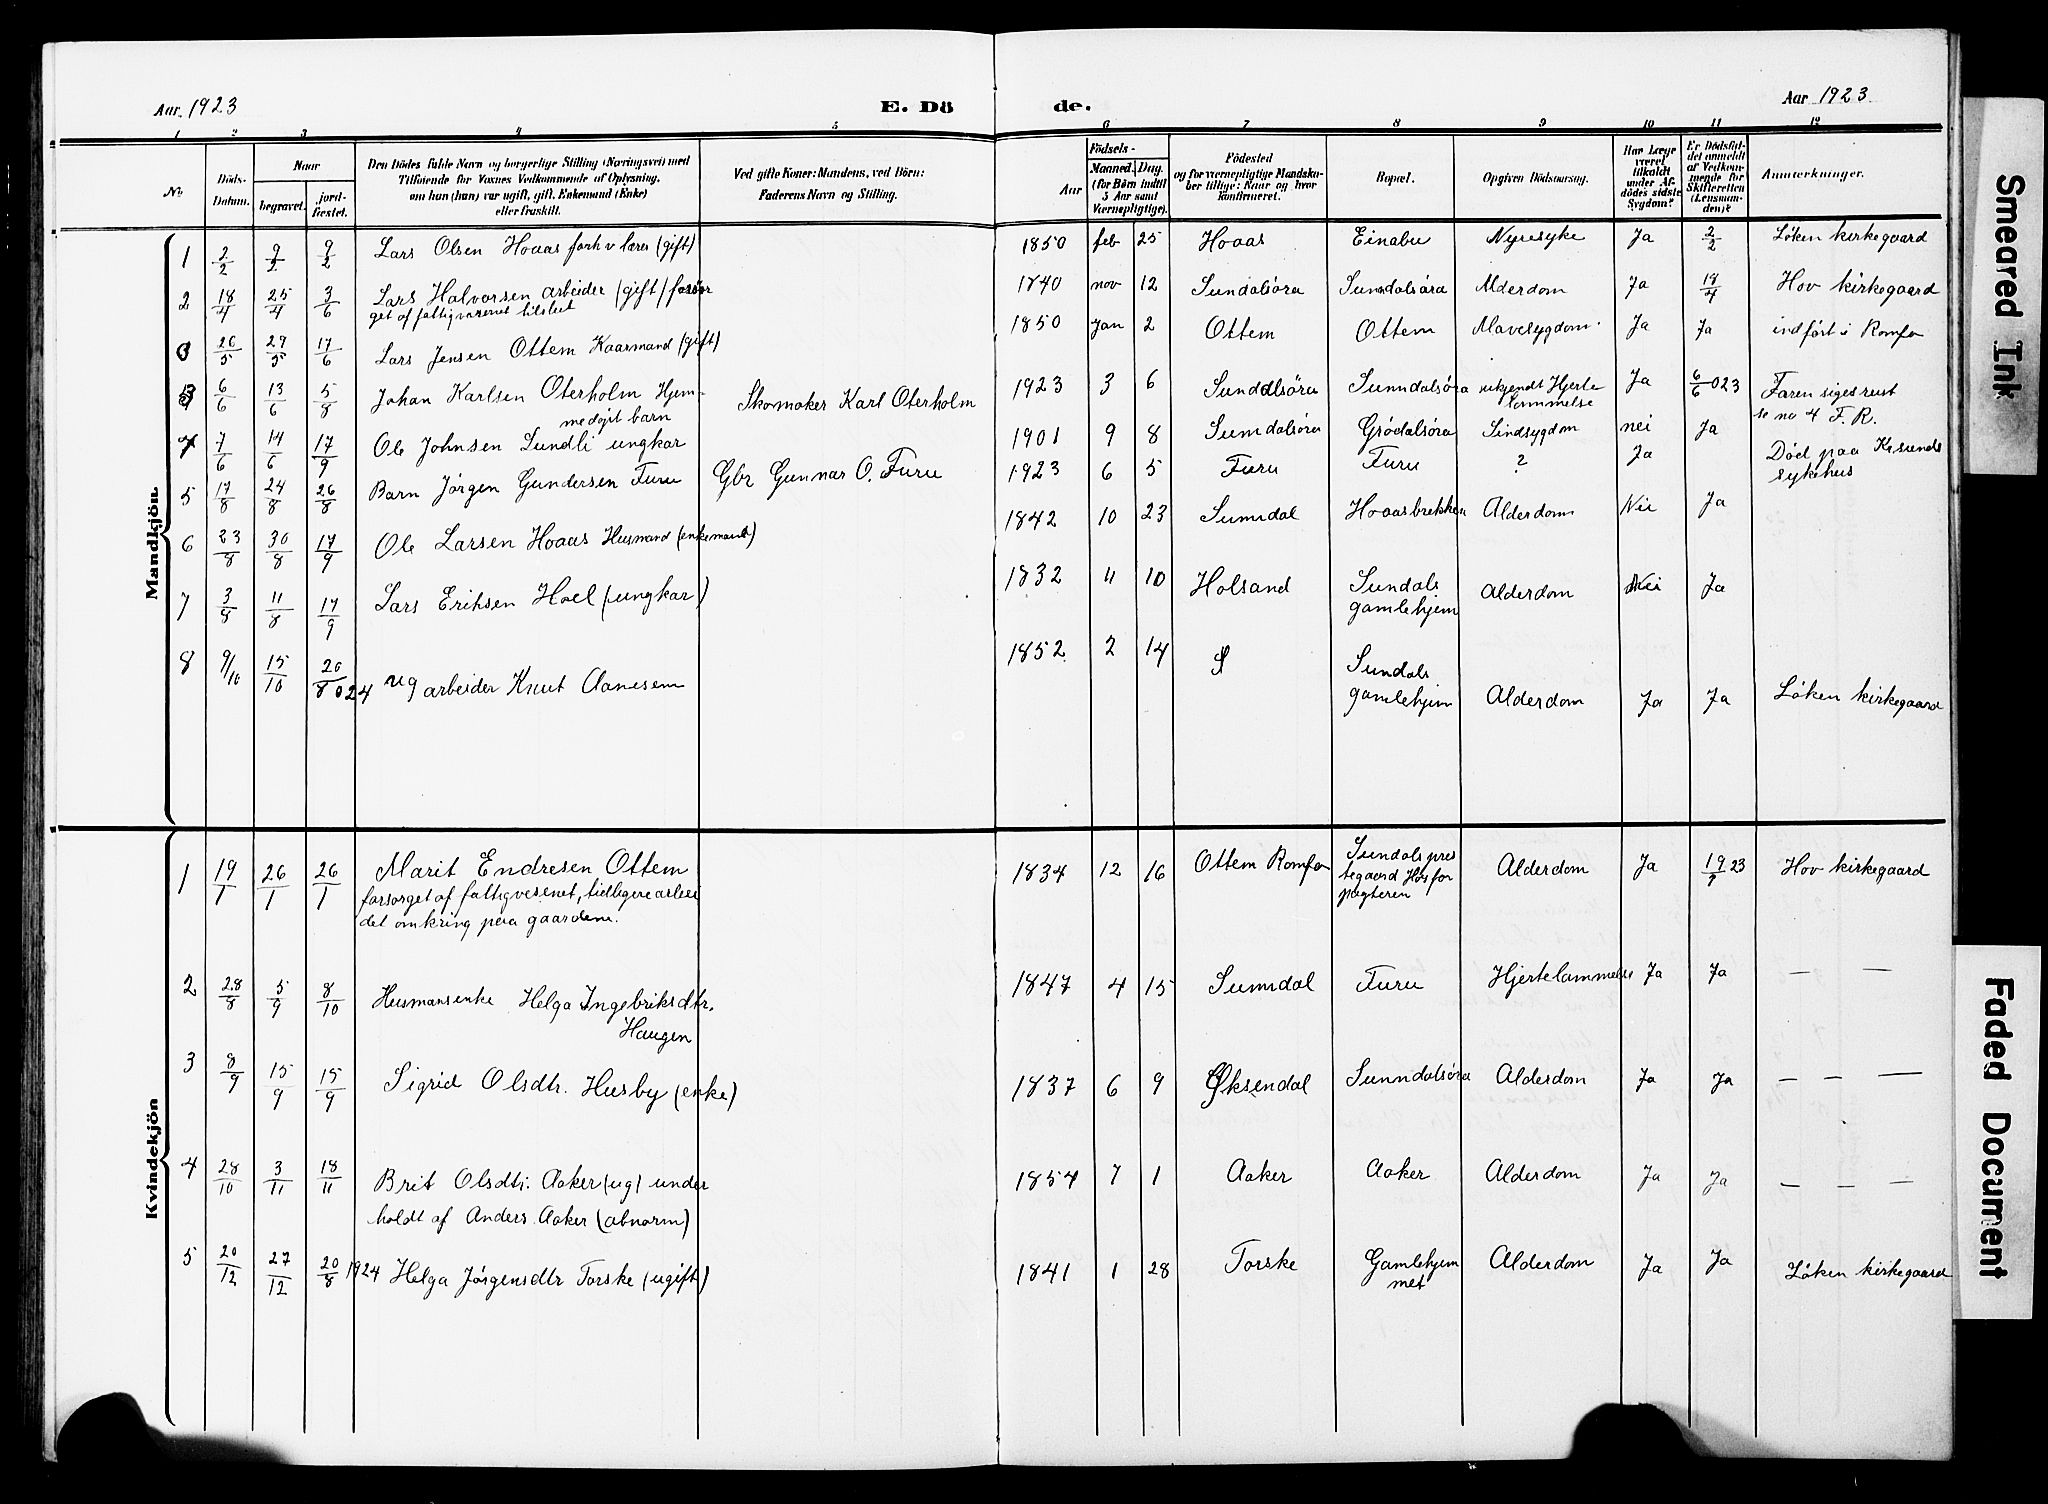 Aar 1923
E. Döde.
Aar 1923.
1 2 3 4 5 6 7 8 9 10 11 12
No
Döds-Datum.
Naar
begravet.
jord-fæstet.
Den Dödes fulde Navn og borgerlige Stilling (Næringsvei) med
Tilföiende for Voxnes Vedkommende af Oplysning,
om han (hun) var ugift, gift, Enkemand (Enke)
eller fraskilt.
Ved gifte Koner: Mandens, ved Börn:
Faderens Navn og Stilling.
Födsels-
Aar
Maaned.
Dag.
(for Børn indtil
5 Aar samt
Værnepligtige).
Födested
og for værnepligtige Mandska-
ber tillige: Naar og hvor
konfirmeret.
Bopæl.
Opgiven Dödsaarsag.
Har Læge
været
tilkaldt
under Af-
dödes sidste
Sygdom?
Er Dödsfal-
det anmeldt
af Vedkom-
mende for
Skifteretten
(Lensman-
den)?
Anmærkninger.
Mandkjön.
1 2/2 9/2 9/2 Lars Olsen Hoaas forh v lærer (gift) 1850 feb 25 Hoaas Einabu Nyresyke Ja 2/2 Løken kirkegaard
2 18/4 25/4 3/6 Lars Halvorsen arbeider (gift) forsør
get af fattigvæsenet tilslut 1840 nov 12 Sundalsøra Sunndalsøra Alderdom Ja 19/4 Hov kirkegaard
3 26/5 29/5 17/6 Lars Jensen Ottem Kaarmand (gift) 1850 Jan 2 Ottem Ottem Mavesygdom. Ja Ja indført i Romfo
6/6 13/6 5/8 Johan Karlsen Oterholm Hjem-
medøpt barn Skomaker Karl Oterholm 1923 3 6 Sunddlsøra Sunndalsøra ukjendt Hjerte
lammelse Ja 6/6 023 Faren siges reist
se no 4 F. R.
4 7/6 14/6 17/9 Ole Johnsen Sundli ungkar 1901 9 8 Sumdalsøra Grødalsøra Sindsygdom nei Ja
5 17/8 24/8 26/8 Barn Jørgen Gundersen Furu Gbr Gunnar O. Furu 1923 6 5 Furu Furu ? Ja Død paa Kr.sunds
sykehus
6 23/8 30/8 17/9 Ole Larsen Hoaas Husmand (enkemand) 1842 10 23 Sunndal Hoaasbrekken Alderdom Nei Ja
7 3/8 11/8 17/9 Lars Eriksen Hoel (ungkar) 1832 11 10 Holsand Sundals
gamlehjem Alderdom Nei Ja
8 9/10 15/10 20/8 024 ug arbeider Knut Aanesem 1852 2 14 S Sundals
gamlehjem Alderdom Ja Ja Løken kirkegaard
Kvindekjön
1 19/1 26/1 26/1 Marit Endresen Ottem
forsorget af fattigvesenet, tidligere arbei
det omkring paa gaardene. 1834 12 16 Ottem Romfo Sundals pres
tegaard Hos for
pagteren Alderdom Ja 19/1 23 Hov kirkegaard
2 28/8 5/9 8/10 Husmansenke Helga Ingebriksdtr.
Haugen 1847 4 15 Sunndal Furu Hjertelammelse Ja Ja — —
3 8/9 15/9 15/9 Sigrid Olsdtr. Husby (enke) 1837 6 9 Øksendal Sunndalsøra Alderdom Ja Ja — — —
4 28/10 3/11 18/11 Brit Olsdtr. Aaker (ug) under
holdt af Anders Aaker (abnorm) 1854 7 1 Aaker Aaker Alderdom Ja Ja — — —
5 20/12 27/12 20/8 1924 Helga Jørgensdtr Torske (ugift) 1841 1 28 Torske Gamlehjem
met Alderdom Ja Ja Løken kirkegaard
Smeared Ink
Faded Document